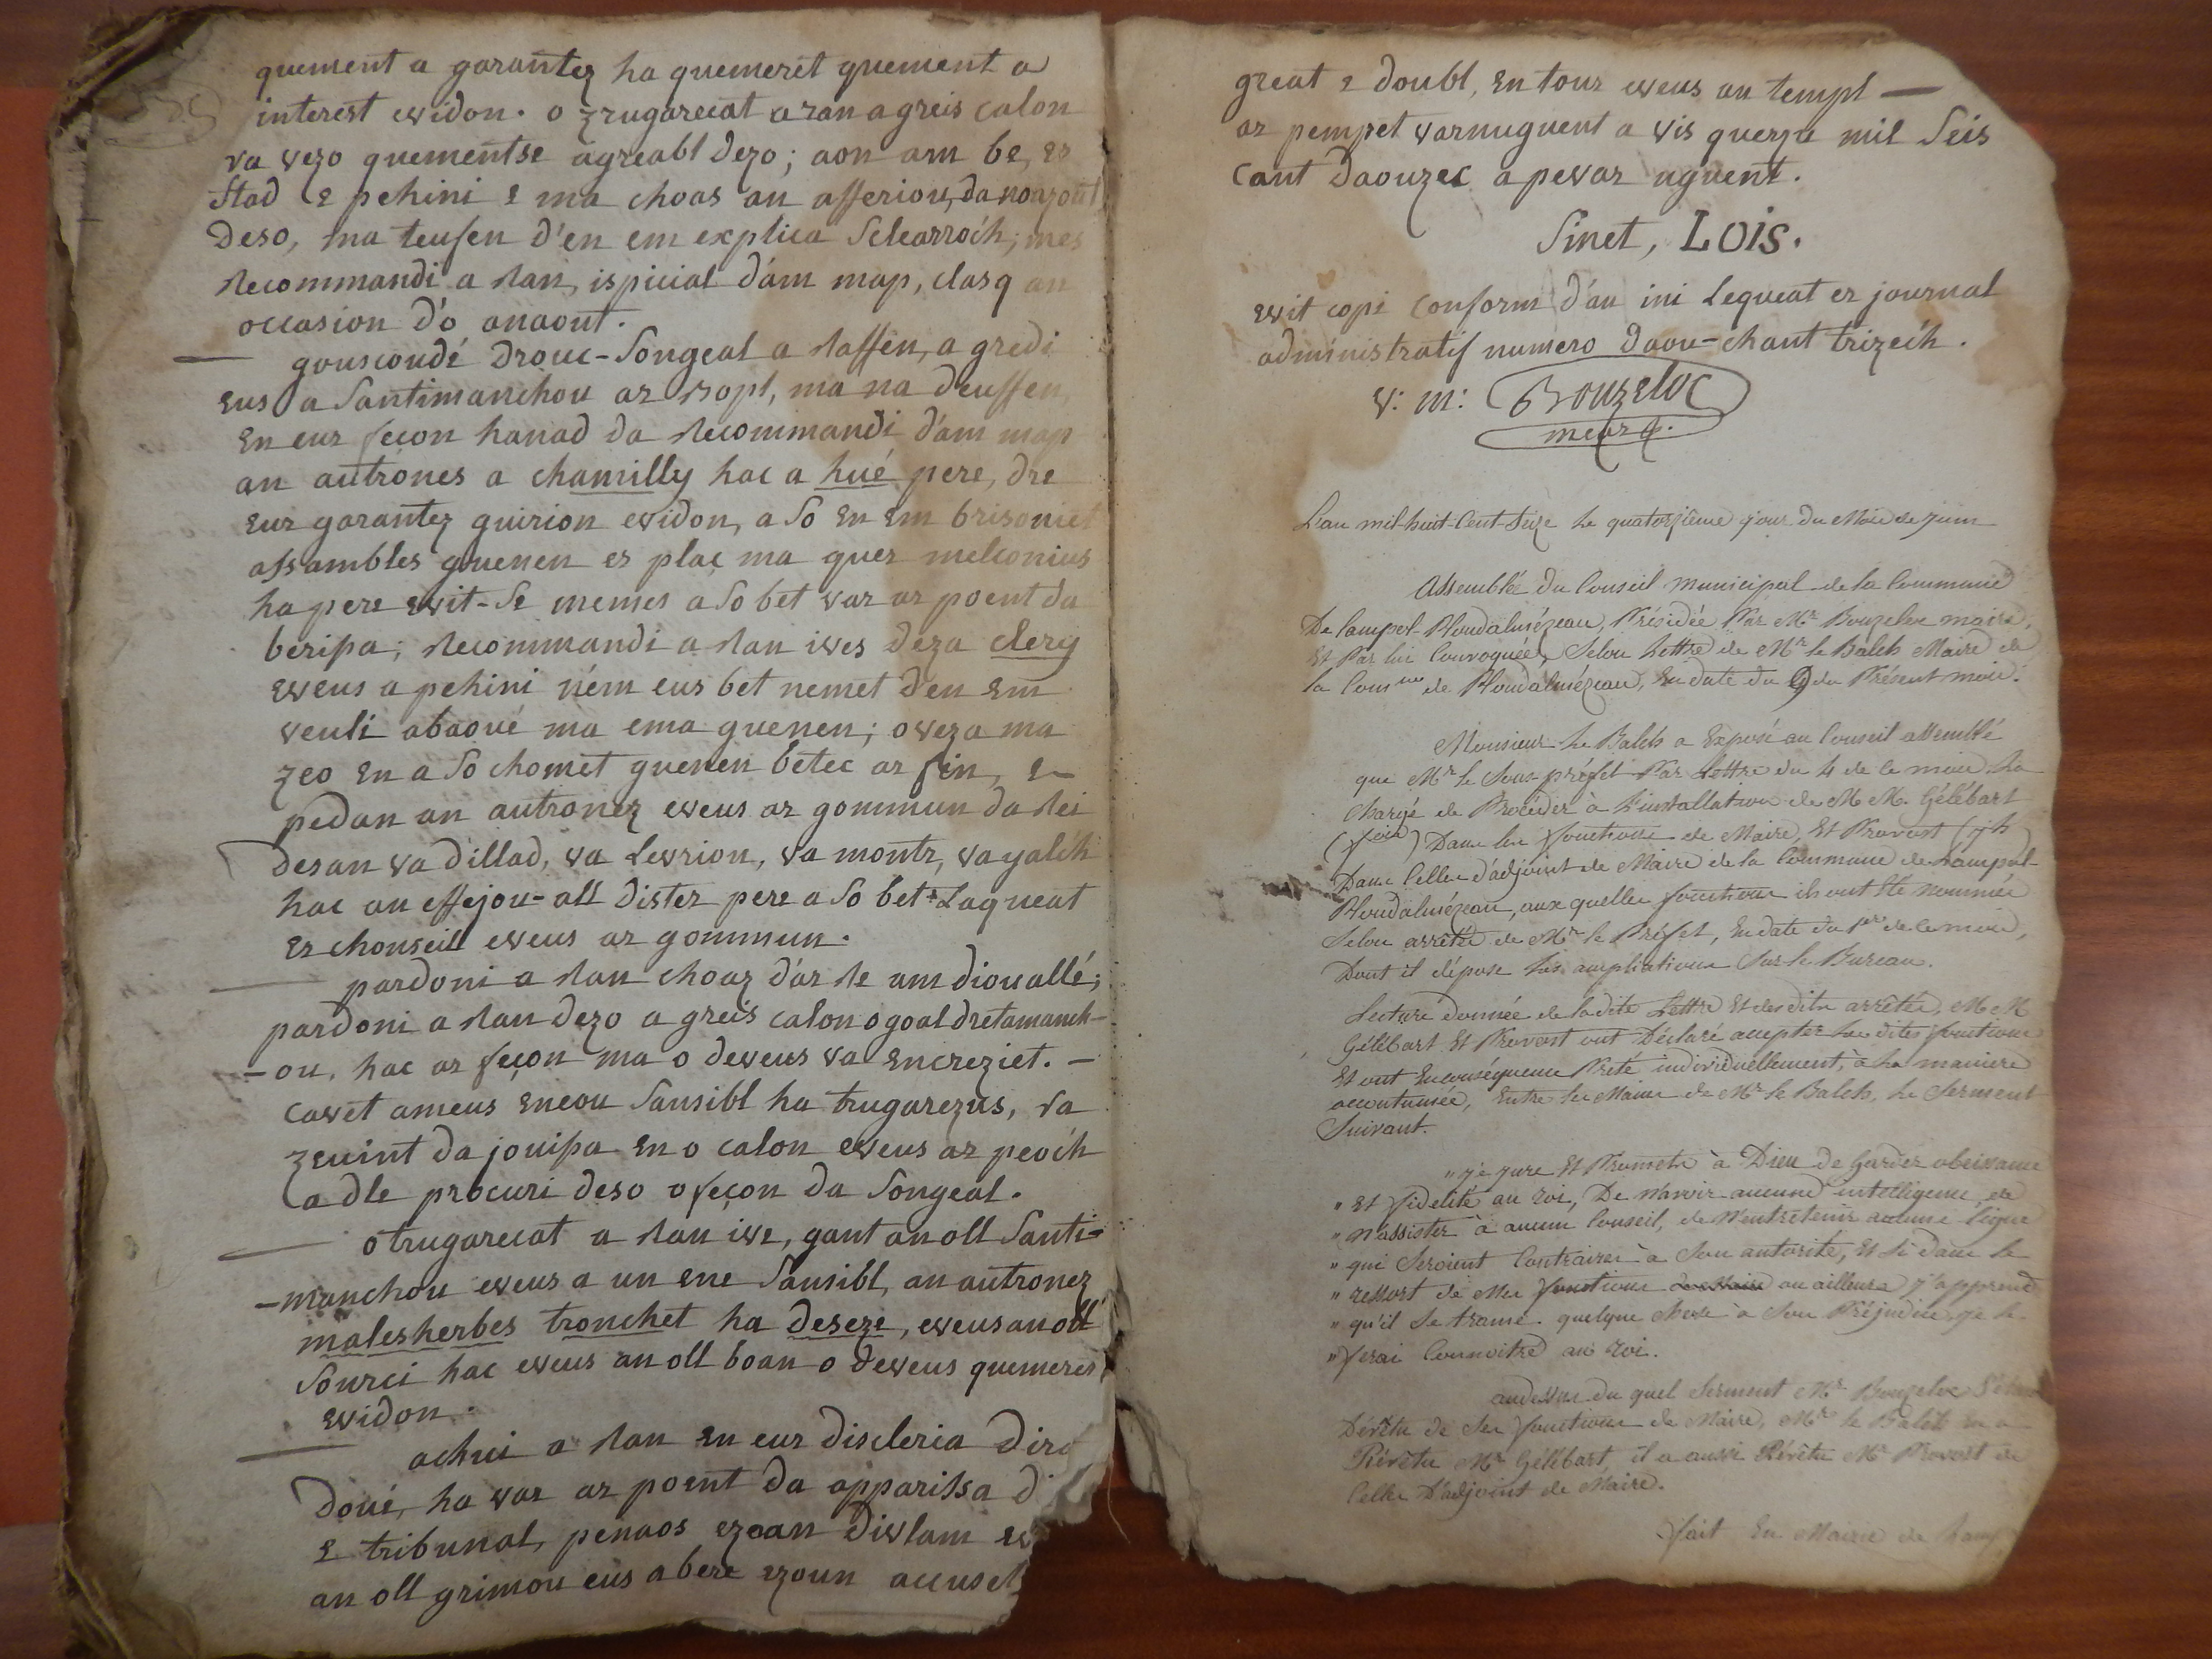 quement a garantez ha quemeret quement a
interest evidon. o zrugarecat a ran a greis calon
ra vezo quementse agreabl dezo; aon am be, er
stad e pehini e ma choas an afferiou, da noazout
deso, ma teusen d'en em explica sclearroc'h; mes
recommandi a ran, ispicial d'am map, clasq an
occasion d'o anaout.
gouscoudé drouc-songeal a raffen, a gredi
eus a santimanchou ar ropl, ma na deuffen,
en eur feçon hanad da recommandi d'am map
an autrones a chamilly hac a hué pere, dre
eur garantez guirion evidon, a so en em brisoniet
assambles guenen er plaç ma quer melconius
ha pere evit-se memes a so bet var ar poent da
berissa; recommandi a ran ives deza clery
eveus a pehini n'em eus bet nemet d'en em
veuli abaoué ma ema guenen; o veza ma
zeo en a so chomet guenen betec ar fin, e
pedan an autronez eveus ar gommun da rei
desan va dillad, va levriou, va montr, va yalc'h
hac an effejou-all dister pere a so bet laqueat
er chonseill eveus ar gommun.
pardoni a ran choaz d'ar re am diouallé;
pardoni a ran dezo a greis calon o goal dretamanch-
-ou, hac ar feçon ma o deveus va encreziet. -
cavet ameus eneou sansibl ha trugarezus, ra
zeuint da jouissa en o calon eveus ar peoc'h
a dle procuri deso o feçon da songeal.
o trugarecat a ran ive, gant an oll santi-
-manchou eveus a un ene sansibl, an autronez
malesherbes tronchet ha deseze, eveus an oll
sourci hac eveus an oll boan o deveus quemeret
evidon.
achui a ran en eur discleria dira
doué, ha var ar poent da apparissa d
e tribunal, penaos ezoan divlam ev
an oll grimou eus a bere ezoun accuset
great e doubl, en tour eveus an templ —
ar pempet varnuguent a vis querzu mil seis
cant daouzec a pevar uguent.
sinet, LOIS.
evit copi conform d'an ini lequeat er journal
administratif numero daou-chant trizec'h.
v: m: Bouzeloc
mear.
L'an mil huit-cent-seize le quatorzième jour du mois de juin
Assemblée du Conseil municipal de la Commune
De lampol-Ploudalmézeau, Présidée Par Mr Bouzeloc maire,
Et Par lui Convoquée, Selon Lettre de Mr le Balch Maire de
la Comne de Ploudalmézeau, En date du 9 du Présent mois.
Monsieur Le Balch a Exposé au Conseil assemblé
que Mr le Sous-préfet Par Lettre du 4 de ce mois l'a
Chargé de Procéder à l'installation de M M. Gélébart
Dans les fonctions de Maire, Et Provost
Dans Celles d'adjoint de Maire de la Commune de Lampol-
Ploudalmézeau, aux quelles fonctions ils ont été nommés
Selon arrêtés de Mr le Préfet, En date du 1er de ce mois,
Dont il dépose les ampliations Sur le Bureau.
Lecture donnée de la dite Lettre Et des dits arrêtés, M M
Gélébart Et Provost ont Déclaré accepter les dites fonctions
Et ont En conséquence Prêté individuellement, à la maniere
accoutumée, Entre les Mains de Mr le Balch, le Serment
Suivant.
" je jure Et Promets à Dieu de Garder obeissance
" Et fidelité au Roi, De n'avoir aucune intelligence, de
" n'assister à aucun Conseil, de N'entretenir aucune ligue
" qui Seroient Contraires à Son autorité, Et Si dans le
" ressort de mes fonctions ou ailleurs j'apprend
" qu'il Se trame quelque Chose à Son Préjudice, je le
" ferai Connoitre au Roi.
audessus du quel Serment Mr Bouzeloc
Dévêtu de Ses fonctions de Maire, Mr le Balch en a
Révêtu Mr Gélébart, il a aussi Révêtu Mr Provost de
Celles D'adjoint de Maire.
fait En Mairie de Lamp